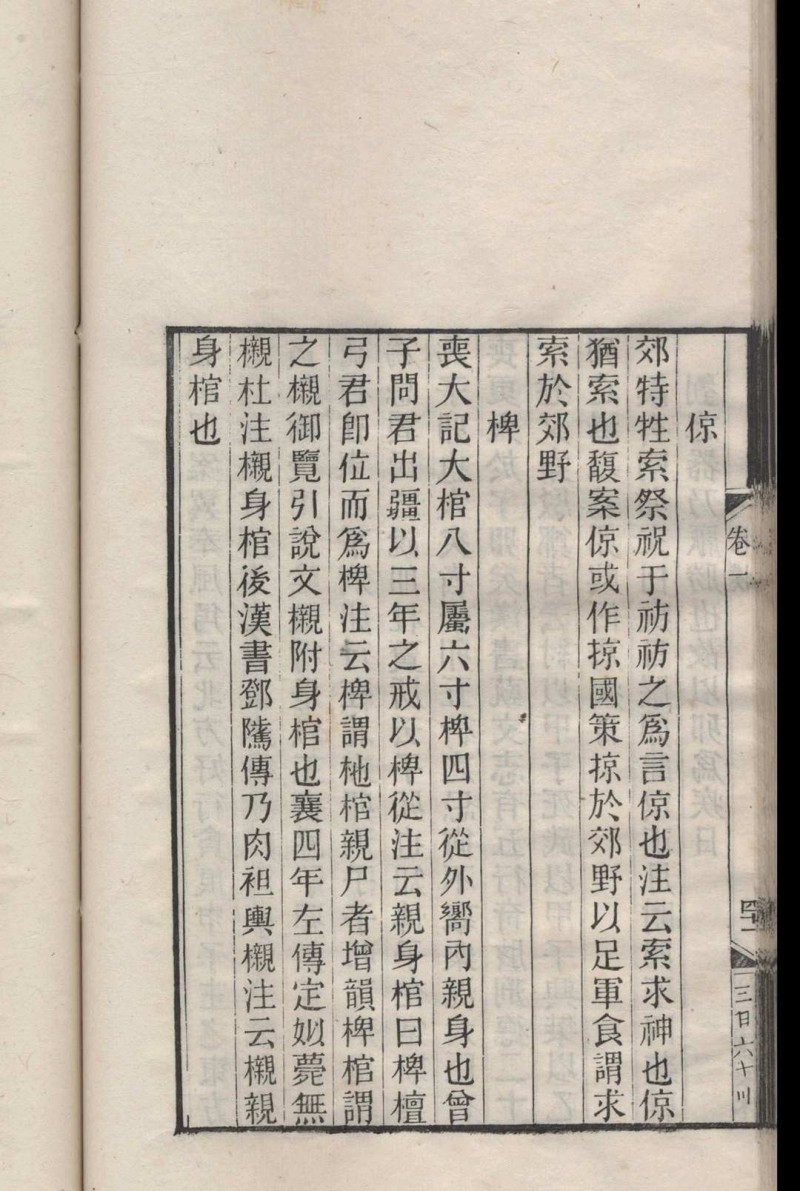 卷一
三百六十川
倞
郊特牲索祭祝于祊祊之爲言倞也注云索求神也倞
猶索也馥案倞或作掠國策掠於郊野以足軍食謂求
索於郊野
椑
喪大記大棺八寸屬六寸椑四寸從外嚮內親身也曾
子問君出疆以三年之戒以椑從注云親身棺曰椑檀
弓君卽位而爲椑注云椑謂杝棺親尸者增韻椑棺謂
之櫬御覽引說文櫬附身棺也襄四年左傳定姒薨無
櫬杜注櫬身棺後漢書鄧騭傳乃肉袒輿櫬注云櫬親
身棺也